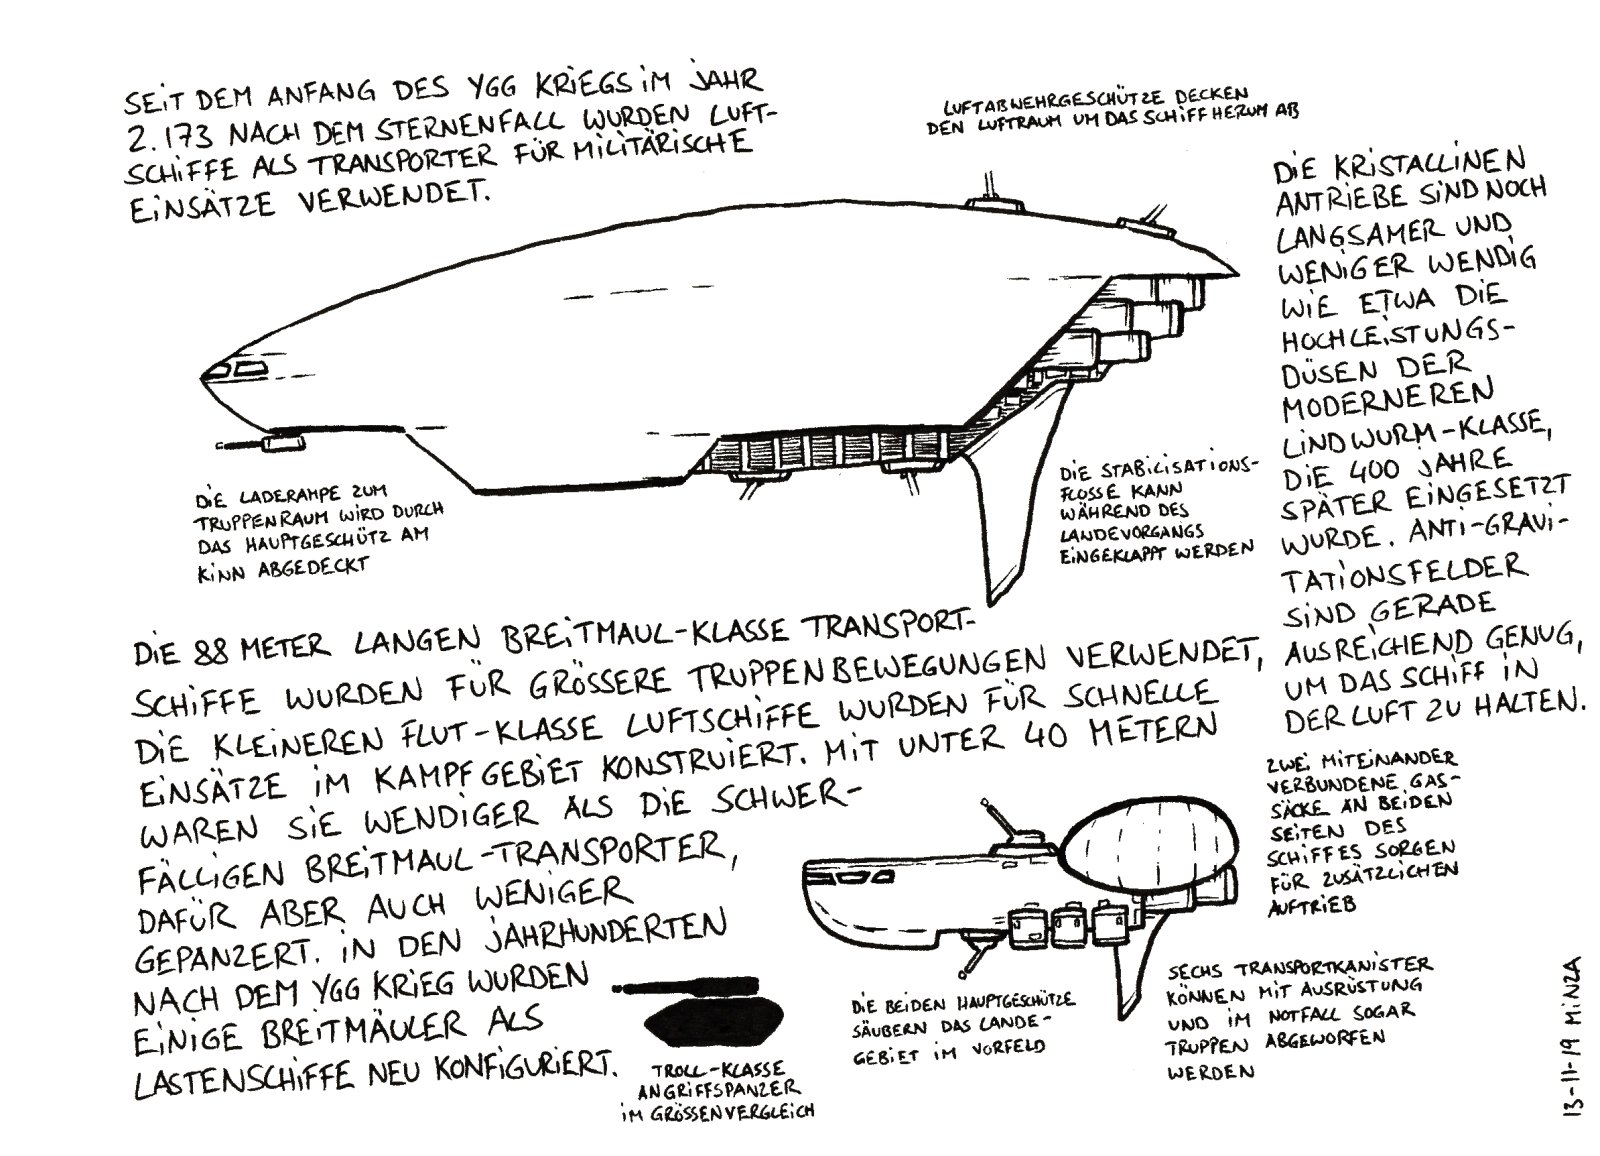 SEIT DEM ANFANG DES YGG KRIEGS IM JAHR
2.173 NACH DEM STERNENFALL WURDEN LUFT-
SCHIFFE ALS TRANSPORTER FÜR MILITÄRISCHE
EINSÄTZE VERWENDET.
LUFTABWEHRGESCHÜTZE DECKEN
DEN LUFTRAUM UM DAS SCHIFF HERUM AB
DIE KRISTALLINEN
ANTRIEBE SIND NOCH
LANGSAMER UND
WENIGER WENDIG
WIE ETWA DIE
HOCHLEISTUNGS-
DÜSEN DER
MODERNEREN
LINDWURM-KLASSE,
DIE 400 JAHRE
SPÄTER EINGESETZT
WURDE. ANTI-GRAVI-
TATIONSFELDER
SIND GERADE
AUSREICHEND GENUG,
UM DAS SCHIFF IN
DER LUFT ZU HALTEN.
DIE LADERAMPE ZUM
TRUPPENRAUM WIRD DURCH
DAS HAUPTGESCHÜTZ AM
KINN ABGEDECKT
DIE STABILISATIONS-
FLOSSE KANN
WÄHREND DES
LANDEVORGANGS
EINGEKLAPPT WERDEN
DIE 88 METER LANGEN BREITMAUL-KLASSE TRANSPORT-
SCHIFFE WURDEN FÜR GRÖSSERE TRUPPENBEWEGUNGEN VERWENDET,
DIE KLEINEREN FLUT-KLASSE LUFTSCHIFFE WURDEN FÜR SCHNELLE
EINSÄTZE IM KAMPFGEBIET KONSTRUIERT. MIT UNTER 40 METERN
WAREN SIE WENDIGER ALS DIE SCHWER-
FÄLLIGEN BREITMAUL-TRANSPORTER,
DAFÜR ABER AUCH WENIGER
GEPANZERT. IN DEN JAHRHUNDERTEN
NACH DEM YGG KRIEG WURDEN
EINIGE BREITMÄULER ALS
LASTENSCHIFFE NEU KONFIGURIERT.
ZWEI MITEINANDER
VERBUNDENE GAS-
SÄCKE AN BEIDEN
SEITEN DES
SCHIFFES SORGEN
FÜR ZUSÄTZLICHEN
AUFTRIEB
TROLL-KLASSE
ANGRIFFSPANZER
IM GRÖSSENVERGLEICH
DIE BEIDEN HAUPTGESCHÜTZE
SÄUBERN DAS LANDE-
GEBIET IM VORFELD
SECHS TRANSPORTKANISTER
KÖNNEN MIT AUSRÜSTUNG
UND IM NOTFALL SOGAR
TRUPPEN ABGEWORFEN
WERDEN
13-11-19 MINZA